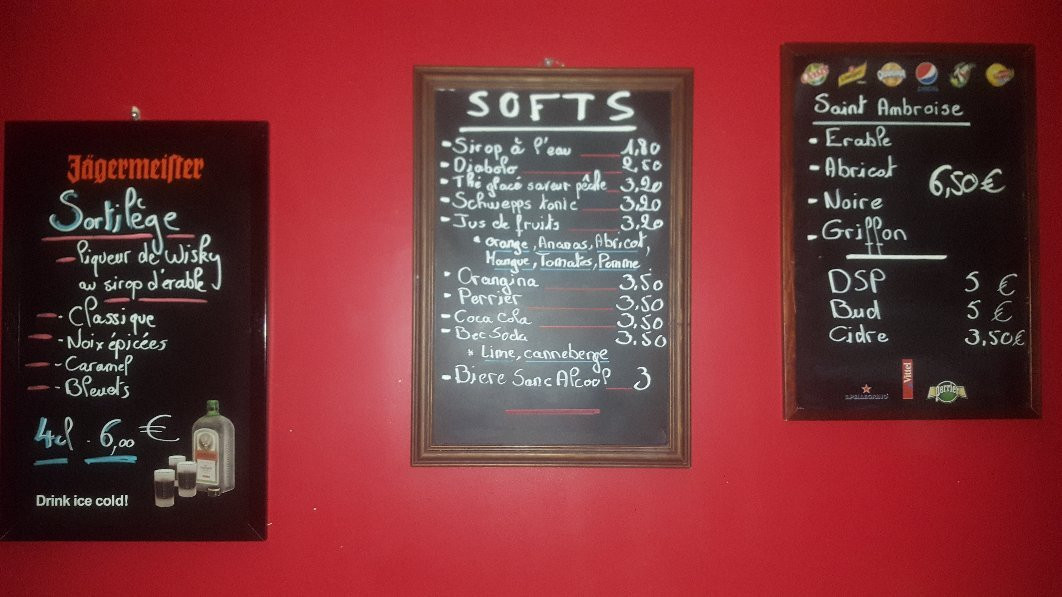 Jägermeister
Sortilège
Liqueur de Wisky
au sirop d'érable
- Classique
- Noix épicées
- Caramel
- Bleuets
4cl . 6,00 €
Drink ice cold!
SOFTS
- Sirop à l'eau 1,80
- Diabolo 2,50
- Thé glacé saveur pêche 3,20
- Schwepps tonic 3,20
- Jus de fruits 3,20
* Orange, Ananas, Abricot,
Mangue, Tomates, Pomme
- Orangina 3,50
- Perrier 3,50
- Coca Cola 3,50
- Bec Soda 3,50
* Lime, canneberge
- Biere Sanc Alcool 3
Saint Ambroise
- Erable
- Abricot
6,50 €
- Noire
- Griffon
DSP 5 €
Bud 5 €
Cidre 3,50€
S.PELLEGRINO
Vittel
perrier